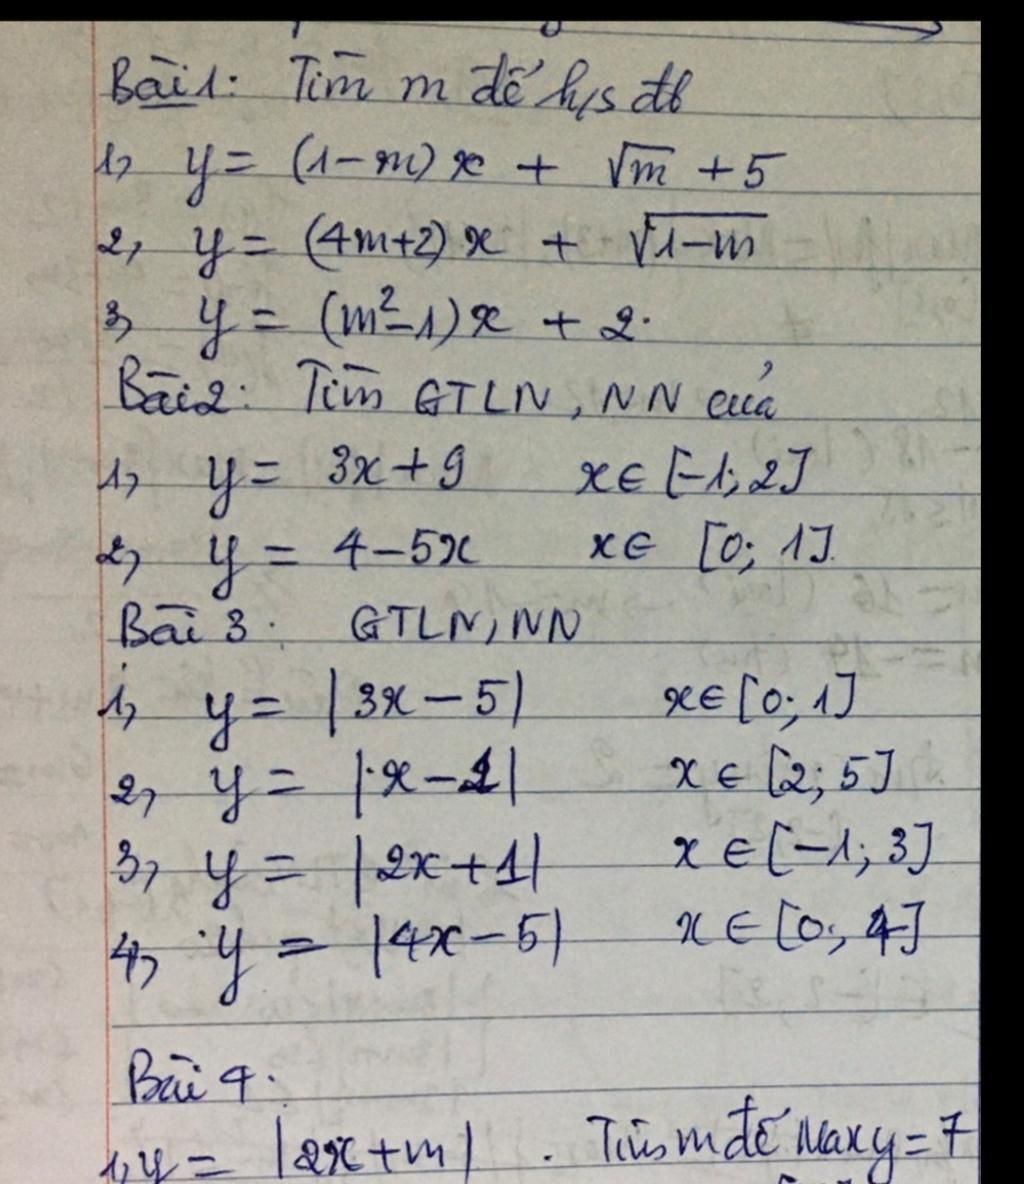 Bài 1: Tìm m để h/s đb
1, y = (1-m)x + √m + 5
2, y = (4m+2)x + √(1-m)
3, y = (m²-1)x + 2.
Bài 2: Tìm GTLN, NN của
1, y = 3x+9 x∈ [-1; 2]
2, y = 4-5x x∈ [0; 1].
Bài 3: GTLN, NN
1, y = |3x-5| x∈[0; 1]
2, y = |x-1| x ∈ [2; 5]
3, y = |2x+1| x ∈ [-1; 3]
4, y = |4x-5| x ∈ [0; 4]
Bài 4:
1, y = |2x+m| . Tìm m để Max y = 7